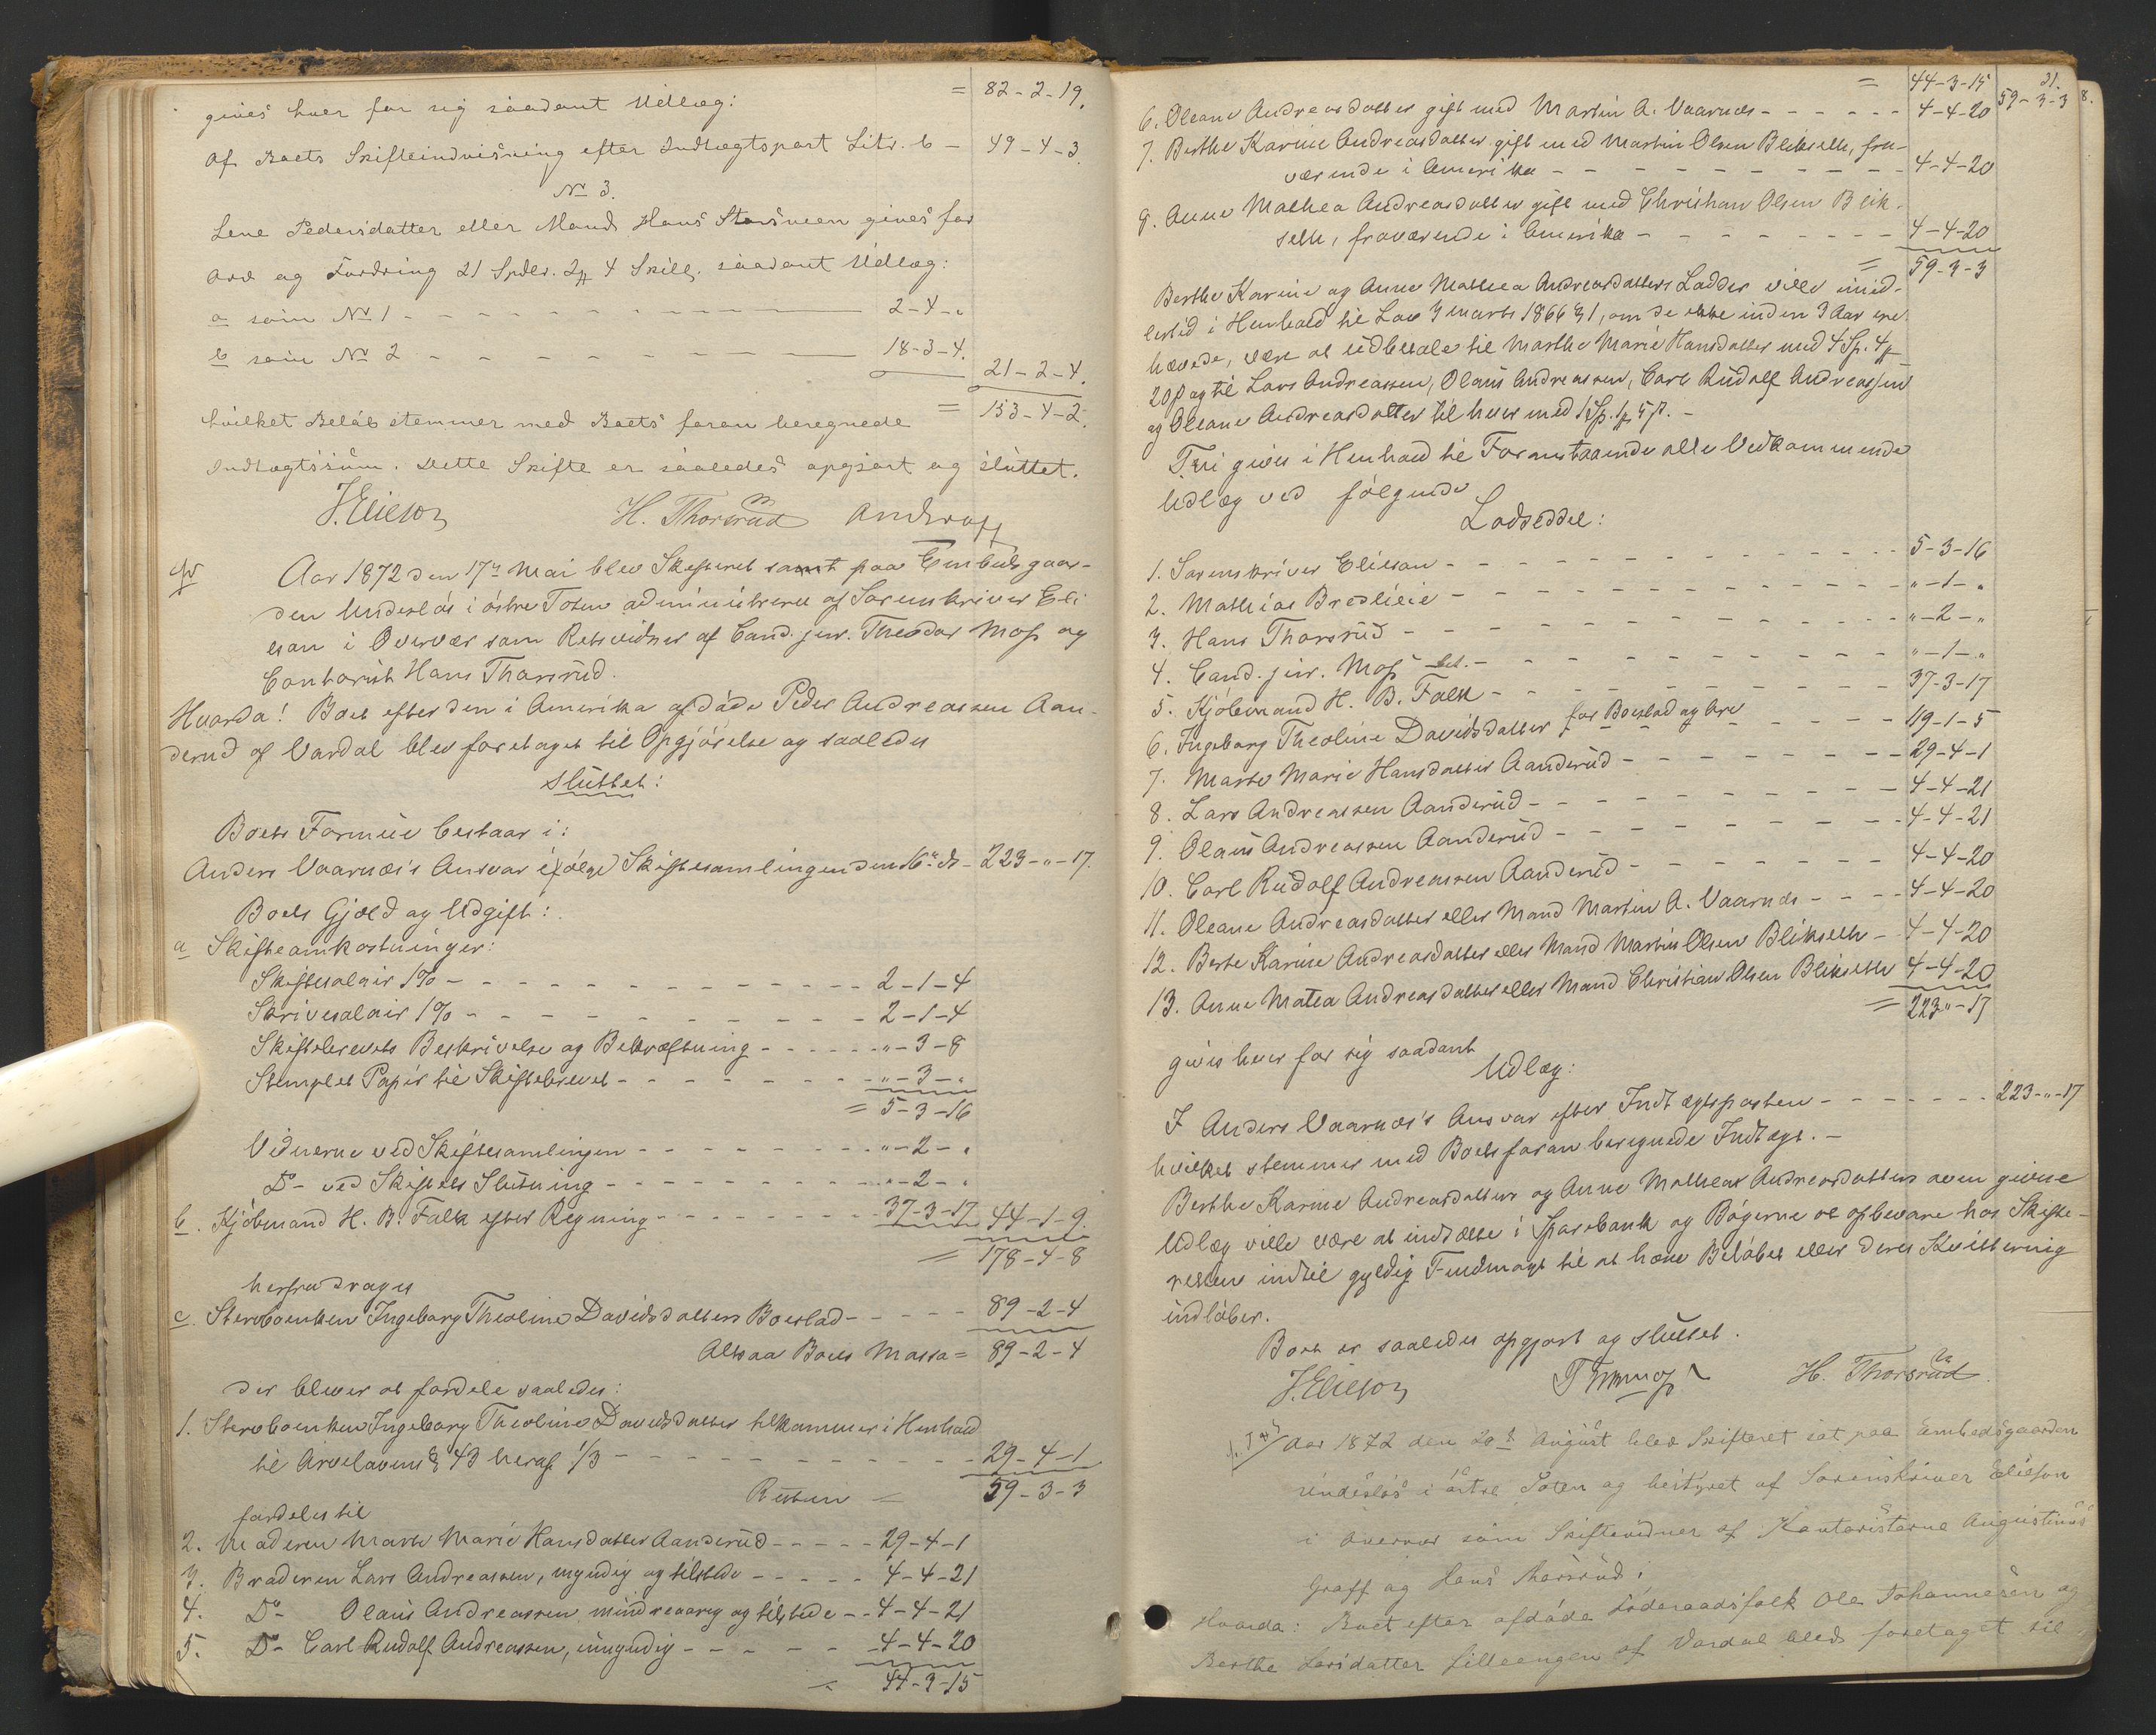 = 82-2-19.
gives hver for sig saadant Udlæg:
Af Boets Skifteindvisning efter Indtægtspost Litr. b - 49-4-3.
No 3.
Lene Pedersdatter eller Mand Hans gives for
Arv og Fordring 21 Spdlr. 2 4 Skill. saadant Udlæg:
a som No 1 - - - 2-4-"
b som No 2 - - - 18-3-4.
21-2-4.
= 153-4-2.
hvilket Beløb stemmer med Boets foran beregnede
Indtægtssum. Dette Skifte er saaledes opgjort og sluttet.
J. Elieson H. Thorsrud
Aar 1872 den 17de Mai blev Skifteret samt paa Embedsgaar-
den Underløs i østre Toten administreret af Sorenskriver Eli-
eson i Overvær som Retsvidner af Cand. jur. Theodor Moss og
Contorist Hans Thorsrud.
Hvorda! Boet efter den i Amerika afdøde Peder Andreassen Aan-
derud af Vardal blev foretaget til Opgjørelse og saaledes
sluttet:
Boets Formue bestaar i:
Anders Vaarnæs's Ansvar ifølge Skiftesamlingen den 16de ds - 223-"-17.
Boets Gjæld og Udgift:
a Skifteomkostninger:
Skiftesalair 1% - - - 2-1-4
Skrivesalair 1% - - - 2-1-4
Skiftebrevets Beskrivelse og Bekræftning - - - "-3-8
Stemplet Papir til Skiftebrevet - - - "-3-"
= 5-3-16
Vidnerne ved Skiftesamlingen - - - "-2-"
Do- ved Skiftets Slutning - - - "-2-"
b. Kjøbmand H. B. Falk efter Regning - - - 37-3-17 44-1-9.
= 178-4-8
herfra drages
c. Stervboenken Ingeborg Theoline Davidsdatters Boeslod - - - 89-2-4
Altsaa Boets Massa = 89-2-4
der bliver at fordele saaledes:
1. Stervboenken Ingeborg Theoline Davidsdatter tilkommer i Henhold
til Arvelovens § 43 heraf 1/3 - - - 29-4-1
Resten = 59-3-3
fordeles til
2. Moderen Marte Marie Hansdatter Aanderud - - - 29-4-1
3. Broderen Lars Andreassen, myndig og tilstede - - - 4-4-21
4. Do- Olaus Andreassen mindreaarig og tilstede - - 4-4-21
5. Do- Carl Rudolf Andreassen, umyndig - - - 4-4-20
= 44-3-15
31.
= 44-3-15 59-3-3 8.
6. Oleane Andreasdatter gift med Martin A. Vaarnæs - - - 4-4-20
7. Berthe Karine Andreasdatter gift med Martin Olsen Blikseth, fra-
værende i Amerika - - - 4-4-20
8. Anne Mathea Andreasdatter gift med Christian Olsen Blik-
seth, fraværende i Amerika - - - 4-4-20
= 59-3-3
Berthe Karine og Anne Mathea Andreasdatters Lodder ville imid-
lertid i Henhold til Lov 3 marts 1866 § 1, om de ikke inden 3 Aar ere
hævede, være at udbetale til Marthe Marie Hansdatter med 4 Sp. 4
20 β og til Lars Andreassen, Olaus Andreassen, Carl Rudolf Andreassen
og Oleane Andreasdatter til hver med 1 Sp. 1 5 β. -
Thi gives i Henhold til Foranstaaende alle Vedkommende
Udlæg ved følgende
Lodseddel:
1. Sorenskriver Elieson - - - 5-3-16
2. Mathias Bredlieie - - - "-1-"
3. Hans Thorsrud - - - "-2-"
4. Cand. jur. Moss - - - "-1-"
5. Kjøbmand H. B. Falk - - - 37-3-17
6. Ingeborg Theoline Davidsdatter for Boeslod og Arv - - - 119-1-5
7. Marte Marie Hansdatter Aanderud - - - 29-4-1
8. Lars Andreassen Aanderud - - - 4-4-21
9. Olaus Andreassen Aanderud - - - 4-4-21
10. Carl Rudolf Andreassen Aanderud - - - 4-4-20
11. Oleane Andreasdatter eller Mand Martin A. Vaarnæs - - - 4-4-20
12. Berte Karine Andreasdatter eller Mand Martin Olsen Blikseth - 4-4-20
13. Anne Matea Andreasdatter eller Mand Christian Olsen Blikseth 4-4-20
= 223"-17
gives hver for sig saadant
Udlæg:
I Anders Vaarnæs's Ansvar efter Indtægtsposten - - - 223-"-17
hvilket stemmer med Boets foran beregnede Indtægt. -
Berthe Karine Andreasdatters og Anne Matheas Andreasdatters oven givne
Udlæg ville være at indsætte i Sparebank og Bøgerne at opbevare hos Skifte-
retten indtil gyldig Fuldmagt til at hæve Beløbet eller deres Kvittering
indløber.
Boet er saaledes opgjort og sluttet.
J. Elieson H. Thorsrud
Aar 1872 den 20de August blev Skifteret sat paa Embedsgaarden
Undeslös i östre Toten og bestyret af Sorenskriver Elieson
i Overvær som Skiftevidner af Kontoristerne Augustinus
Graff og Hans Thorsrud;
Hvorda: Boet efter afdøde Föderaadsfolk Ole Johannesen og
Berthe Larsdatter Lilleengen af Vardal blev foretaget til